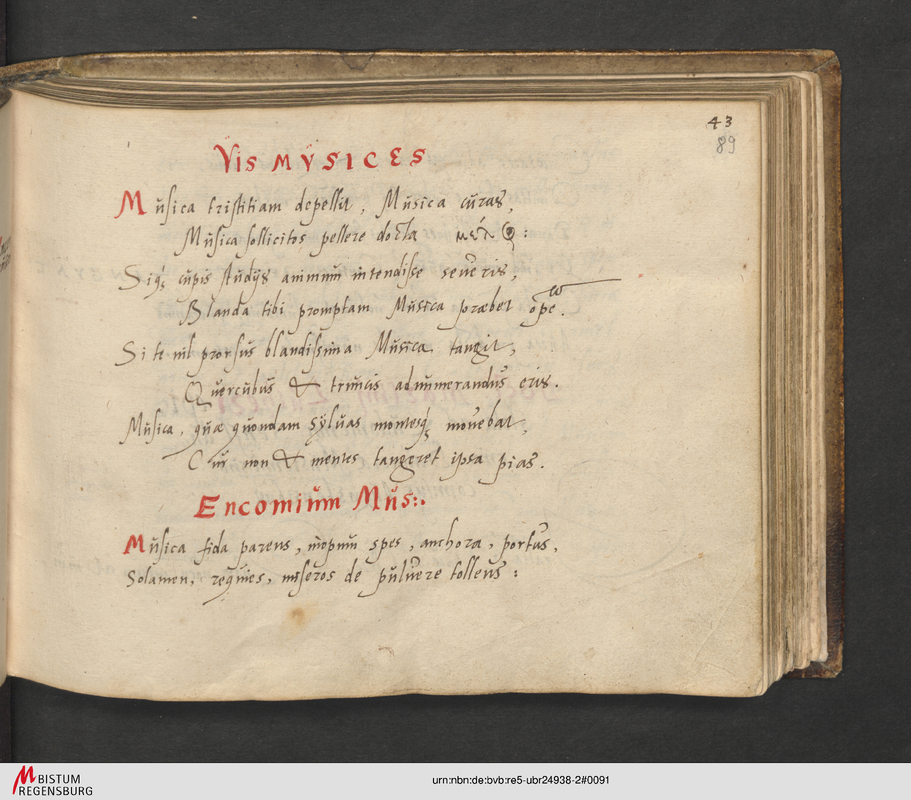 43
89
Vis MVSICES
Musica tristitiam depellit, Musica curas,
Musica sollicitos pellere docta :
Siq; cupis studijs animum intendisse seueris,
Blanda tibi promptam Musica præbet opē.
Si te nil prorsus blandissima Musica tangit,
Quercubus & truncis adnumerandus eris.
Musica, quæ quondam syluas montesq; mouebat,
Cur non & mentes tangeret ipsa pias.
Encomium Mus:.
Musica fida parens, inopum spes, anchora, portus,
Solamen, requies, miseros de puluere tollens :
BISTUM
REGENSBURG
urn:nbn:de:bvb:re5-ubr24938-2#0091